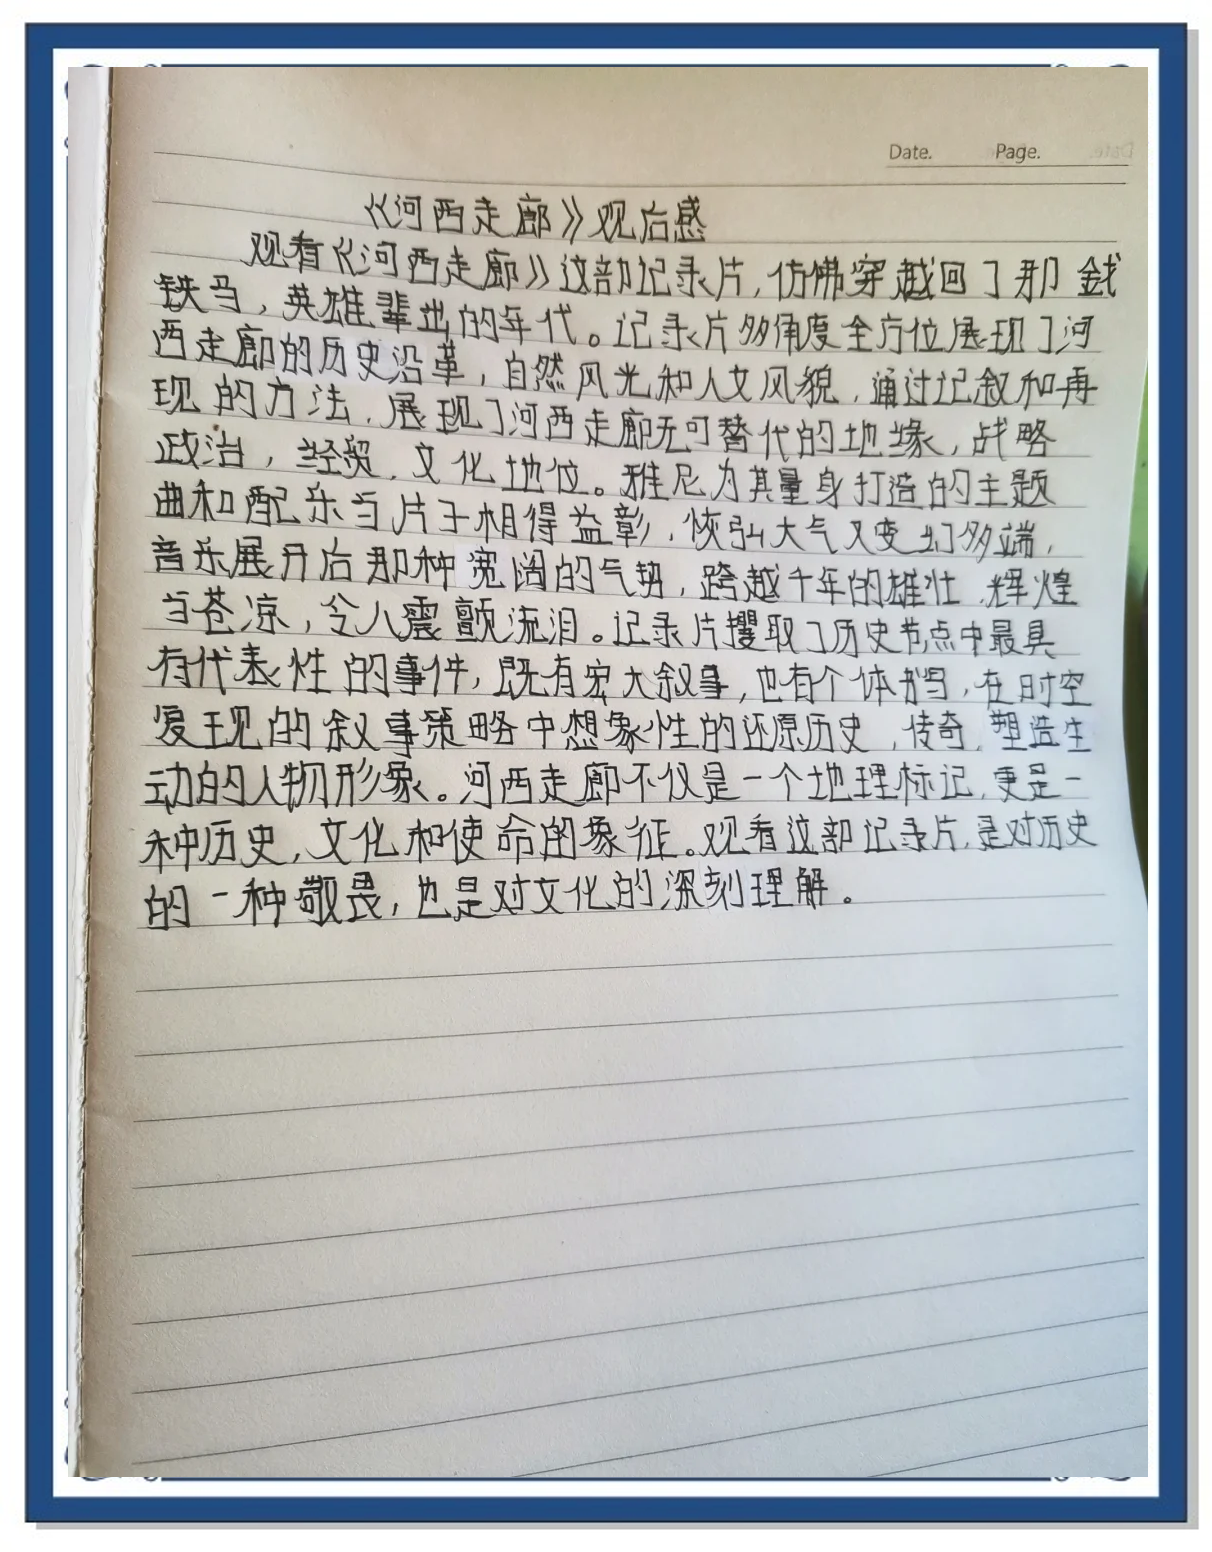 Date. Page.
《河西走廊》观后感
观看《河西走廊》这部记录片,仿佛穿越回了那
铁马,英雄辈出的年代。记录片多角度全方位展现了河
西走廊的历史沿革,自然风光和人文风貌,通过记叙和再
现的方法,展现了河西走廊无可替代的地缘,战略
政治,经贸,文化地位。雅尼为其量身打造的主题
曲和配乐当片子相得益彰,恢弘大气又变幻多端,
音乐展开后那种宽阔的气势,跨越千年的雄壮,辉煌
当苍凉,令人震颤流泪。记录片攫取了历史节点中最具
有代表性的事件,既有宏大叙事,也有个体书写,在时空
复现的叙事策略中想象性的还原历史,传奇,塑造生
动的人物形象。河西走廊不仅是一个地理标记,更是一
种历史,文化和使命的象征。观看这部记录片,是对历史
的一种敬畏,也是对文化的深刻理解。